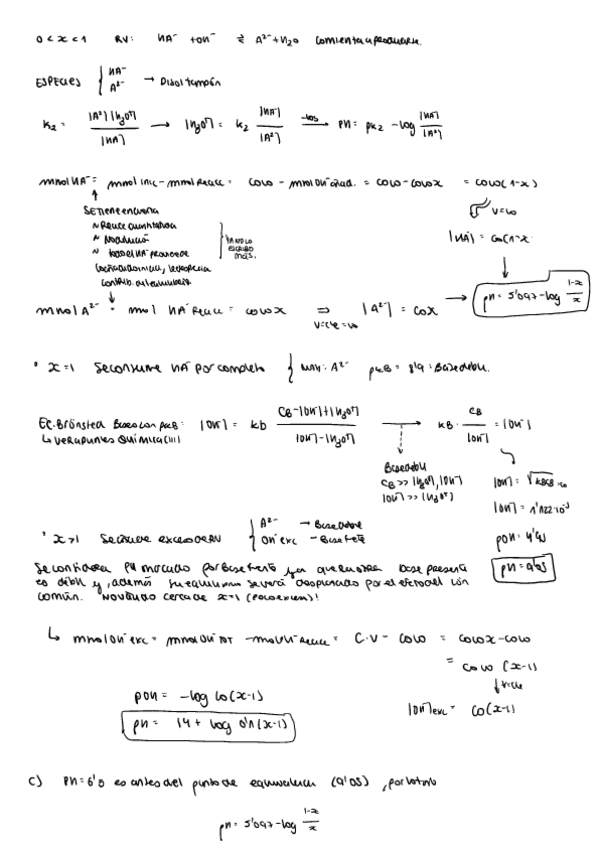 0 < x < 1 RV: HA⁻ + OH⁻ ⇌ A²⁻ + H₂O comienza a producirse.
ESPECIES { HA⁻ A²⁻ → Disol tampón
K₂ = |A²⁻||H₃O⁺| / |HA⁻| → |H₃O⁺| = K₂ |HA⁻| / |A²⁻| -log → pH = pK₂ - log |HA⁻| / |A²⁻|
mmol HA⁻ = mmol inic - mmol reacc = C₀V₀ - mmol OH⁻ añad. = C₀V₀ - C₀V₀x = C₀V₀(1-x)
Se tiene en cuenta
~ Reacc cuantitativa
~ No dilución
|HA⁻| = C₀(1-x)
mmol A²⁻ = mmol HA⁻ reacc = C₀V₀x ⇒ |A²⁻| = C₀x → pH = 5'097 - log (1-x)/x
• x=1 Se consume HA⁻ por completo { A²⁻ pKB = 8'9 : Base débil.
Ec. Brönsted Bases con pKB: |OH⁻| = Kb (CB - |OH⁻| + |H₃O⁺|) / (|OH⁻| - |H₃O⁺|) → KB · CB / |OH⁻| = |OH⁻|
↳ Ver apuntes Química (III)
Base débil
CB >> |H₃O⁺|, |OH⁻|
|OH⁻| >> |H₃O⁺|
|OH⁻| = 1'122·10⁻⁵
pOH = 4'95
pH = 9'05
• x>1 Se añade exceso de RV { A²⁻ → Base débil OH⁻ exc → Base fuerte
Se considera pH marcado por base fuerte ya que la otra base presente
es débil y, además su equilibrio se verá desplazado por el efecto del ión
común. No válido cerca de x=1 (por exceso)!
↳ mmol OH⁻ exc = mmol OH⁻ TOT - mmol OH⁻ reacc = C·V - C₀V₀ = C₀V₀x - C₀V₀
= C₀V₀ (x-1)
|OH⁻| exc = C₀(x-1)
pOH = -log C₀(x-1)
pH = 14 + log 0'1(x-1)
c) pH = 6'0 es antes del punto de equivalencia (9'05), por lo tanto
pH = 5'097 - log (1-x)/x